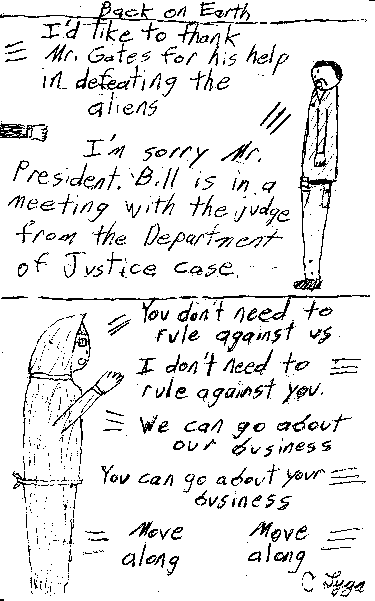 Back on Earth
I'd like to thank
Mr. Gates for his help
in defeating the
aliens
I'm sorry Mr.
President. Bill is in a
meeting with the judge
from the Department
of Justice case.
You don't need to
rule against us
I don't need to
rule against you.
We can go about
our business
You can go about your
business
Move
along
Move
along